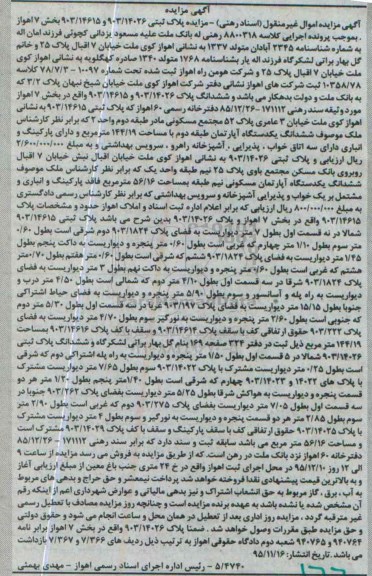 آگهی مزایده
آگهی مزایده اموال غیرمنقول (اسناد رهنی) - مزایده پلاک ثبتی ۹۰۳/۱۴۰۲۶ و ۹۰۳/۱۴۶۱۵ بخش ۷ اهواز
. بموجب پرونده اجرایی کلاسه ۸۸۰۰۳۱۸ رهنی له بانک ملت علیه مسعود یزدانی کچوئی فرزند امان اله
به شماره شناسنامه ۲۳۴۵ آبادان متولد ۱۳۳۷ به نشانی اهواز کوی ملت خیابان ۷ اقبال پلاک ۲۵ و خانم
گل بهار براتی لشکرگاه فرزند اله یار بشناسنامه ۱۷۶۸ متولد ۱۳۴۰ صادره کهگلویه به نشانی اهواز کوی
ملت خیابان ۷ اقبال پلاک ۲۵ و شرکت هومن راه اهواز ثبت شده تحت شماره ۱۰۰۹۷ – ۷۸/۷/۳ کلاسه
۱۰۳۵۸/۷۸ ثبت شرکت های اهواز نشانی دفتر شرکت اهواز کوی ملت خیابان شیخ نبهان پلاک ۳/۲ که
به بانک ملت و دولت بدهکار می باشند و ششدانگ پلاک ۹۰۳/۱۴۰۲۶ و ۹۰۳/۱۴۶۱۵ واقع در بخش ۷ اهواز
مورد وثیقه سند رهنی ۱۷۱۱۱۲ - ۸۵/۱۲/۲۶ دفترخانه رسمی ۶۰ اهواز که پلاک ثبتی ۹۰۳/۱۴۶۱۵ به نشانی
اهواز کوی ملت خیابان ۳ عامری پلاک ۵۲ مجتمع مسکونی مادر طبقه دوم واحد ۲ که برابر نظر کارشناس
ملک موصوف ششدانگ یکدستگاه آپارتمان طبقه دوم با مساحت ۱۴۴/۱۹ مترمربع و دارای پارکینگ و
انباری دارای سه اتاق خواب . پذیرایی . آشپزخانه راهرو . سرویس بهداشتی و به مبلغ ۲/۶۰۰/۰۰۰/۰۰۰
ریال ارزیابی و پلاک ثبتی ۹۰۳/۱۴۰۲۶ به نشانی اهواز کوی ملت خیابان اقبال نبش خیابان ۷ اقبال
روبروی بانک مسکن مجتمع باوی پلاک ۲۵ نیم طبقه واحد یک که برابر نظر کارشناس ملک موصوف
ششدانگ یکدستگاه آپارتمان مسکونی نیم طبقه بمساحت ۵۶/۱۶ مترمربع فاقد پارکینگ و انباری و
مشتمل بر یک خواب و پذیرایی آشپزخانه و سرویس بهداشتی که برابر نظر کارشناس رسمی دادگستری
به مبلغ ۸۰۰/۰۰۰/۰۰۰ ریال ارزیابی که برابر اعلام اداره ثبت اسناد و املاک اهواز حدود و مشخصات پلاک
۹۰۳/۱۴۶۱۵ واقع در بخش ۷ اهواز و پلاک ۹۰۳/۱۴۰۲۶ بدین شرح می باشد پلاک ثبتی ۹۰۳/۱۴۶۱۵
شمالا در نه قسمت اول بطول ۷ متر دیواریست به فضای پلاک ۹۰۳/۱۸۲۴ دوم شرقی است بطول ۰/۶۰
متر سوم بطول ۱/۱۰ متر چهارم که غربی است بطول ۰/۶۰ متر پنجره و دیواریست به داکت پنجم بطول
۱/۴۵ متر دیواریست به فضای پلاک ۹۰۳/۱۸۲۴ ششم که شرقی است بطول ۰/۶۰ متر هفتم بطول ۰/۷۰ متر
هشتم که غربی است بطول ۰/۶۰ متر پنجره و دیواریست به داکت نهم بطول ۳ متر دیواریست به فضای
پلاک ۹۰۳/۱۸۲۴ شرقا در سه قسمت اول بطول ۴/۱۰ متر دوم که شمالی است بطول ۴/۵۰ متر درب و
دیواریست به راه پله و آسانسور و سوم بطول ۵/۹۰ متر پنجره و دیواریست به فضای حیاط اشتراکی
جنوبا بطول ۱۵/۱۵ متر دیواریست به فضای پلاک ۹۰۳/۱۹۷ غربا در سه قسمت اول بطول ۵/۳۰ متر دوم
که جنوبی است بطول ۲/۶۰ متر پنجره و دیواریست به نورگیر سوم بطول ۴/۷۰ متر دیواریست به فضای
پلاک ۹۰۳/۲۲۲ حقوق ارتفاقی کف با سقف پلاک ۹۰۳/۱۴۶۱۴ و سقف با کف پلاک ۹۰۳/۱۴۶۱۶ بمساحت
۱۴۴/۱۹ مترمربع ذیل ثبت در دفتر ۳۲۴ صفحه ۱۶۹ بنام گل بهار براتی لشکرگاه و ششدانگ پلاک ثبتی
۹۰۳/۱۴۰۲۶ شمالا در ۵ قسمت اول بطول ۱/۵۰ متر پنجره و دیواریست به راه پله اشتراکی دوم که شرقی
است بطول ۰/۲۵ متر دیواریست مشترک با پلاک ۹۰۳/۱۴۰۲۲ سوم بطول ۷/۶۵ متر دیواریست مشترک
با پلاک های ۱۴۰۲۲ و ۹۰۳/۱۴۰۲۳ چهارم که شرقی است بطول ۱/۴۰ متر پنجم بطول ۱/۲۰ متر هر دو
قسمت پنجره و دیواریست به هواکش شرقا بطول ۵/۲۵ متر دیواریست بفضای پلاک ۹۰۳/۲۶۲ جنوبا در
سه قسمت اول بطول ۷/۰۵ متر دیواریست بفضای پلاک ۹۰۳/۲۲۷ دوم که غربی است بطول ۲/۹۰ متر
سوم بطول ۲/۸۵ متر هر دو قسمت پنجره و دیواریست به نورگیر و سوم بطول ۴ متر دیواریست مشترک
با پلاک ۹۰۳/۱۴۰۲۵ حقوق ارتفاقی کف با سقف پارکینگ و سقف با کف پلاک ۹۰۳/۱۴۰۲۹ مشترک است
و مساحت ۵۶/۱۶ متر مربع می باشد سابقه ثبت و سند دارد که برابر سند رهنی ۱۷۱۱۱۲ - ۸۵/۱۲/۲۶
دفترخانه ۶۰ اهواز نزد بانک ملت در رهن است. که از طریق مزایده به فروش می رسد مزایده از ساعت ۹
الی ۱۲ روز ۹۵/۱۲/۱۰ در محل اجرای ثبت اهواز واقع در خ ۲۴ متری جنب باغ معین از مبلغ ارزیابی آغاز
و به بالاترین قیمت پیشنهادی نقدا فروخته خواهد شد پرداخت نیمعشر و حق حراج و بدهی های مربوط
به آب ، برق ، گاز مربوط به حق انشعاب اشتراک و نیز بدهی مالیاتی و عوارض شهرداری اعم از اینکه رقم
آن مشخص شده یا نشده باشد به عهده برنده مزایده است و چنانچه روز مزایده مصادف با تعطیل رسمی
غیر مترقبه گردد . مزایده روز اداری بعد از تعطیل در همان محل و ساعت انجام می شود و حقوق دولتی
و حق مزایده طبق مقررات وصول خواهد شد . ضمنا پلاک ۹۰۳/۱۴۰۲۶ واقع در بخش ۷ اهواز برابر نامه
۹۴۰۷۶۴ و ۹۴۰۷۶۵ شعبه دوم دادگاه حقوقی اهواز به ترتیب ذیل ردیف های ۷/۳۶۶ و ۷/۳۶۷ بازداشت
می باشد. تاریخ انتشار: ۹۵/۱۱/۱۶
۵/۴۷۴۰ – رئیس اداره اجرای اسناد رسمی اهواز - مهدی بهمنی